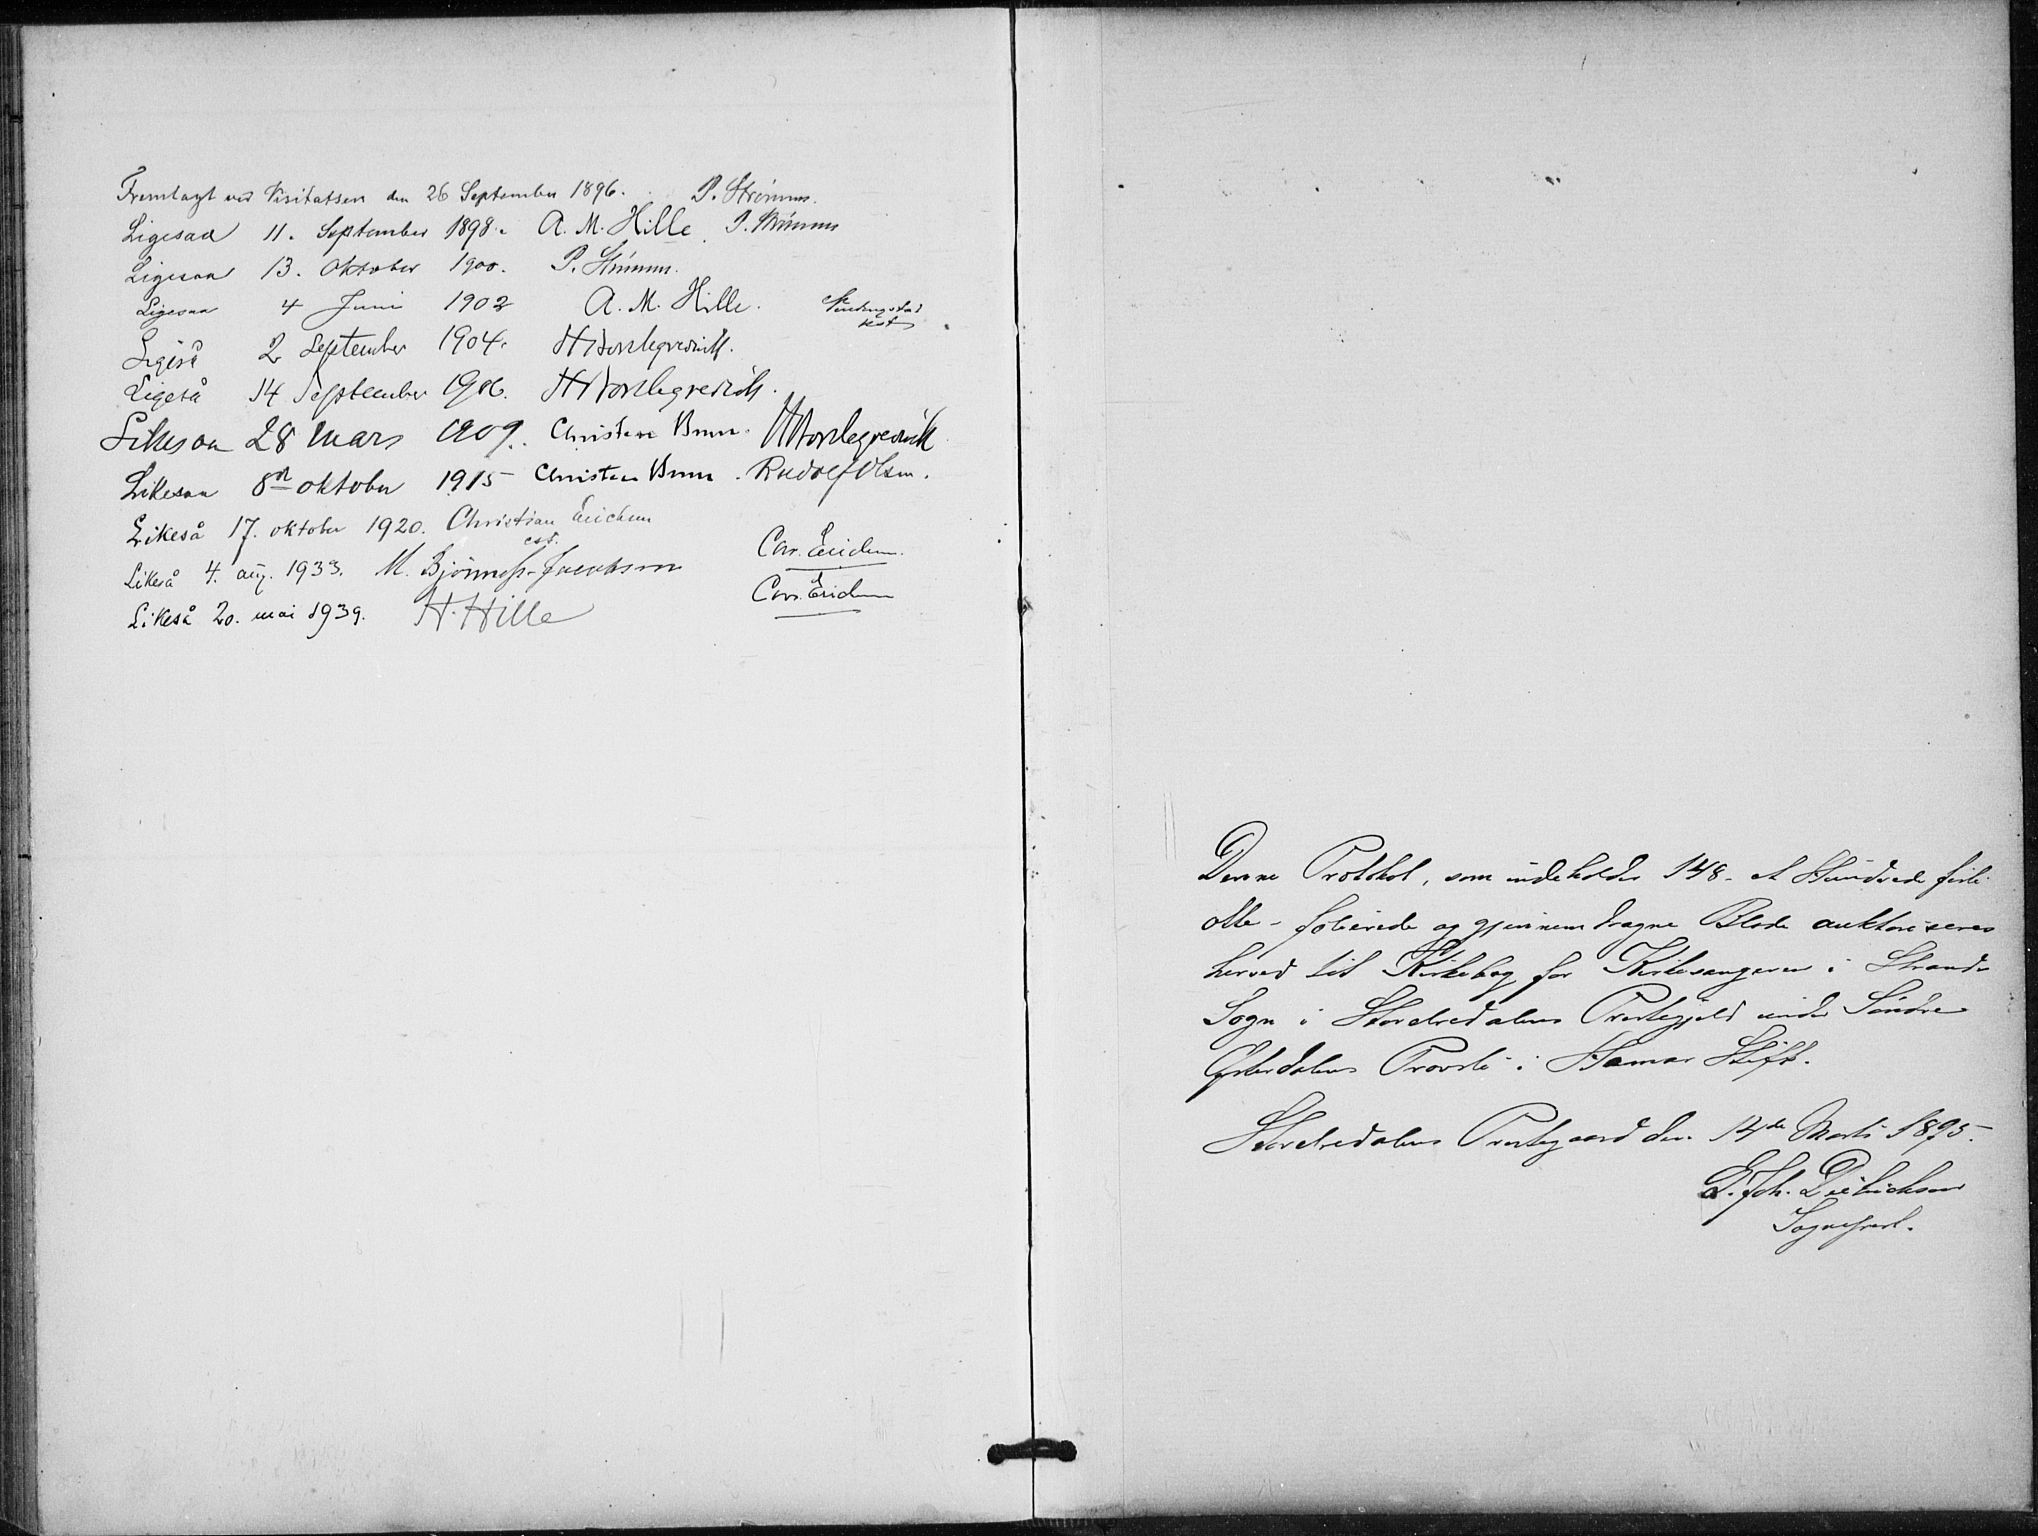 Fremlagt ved Visitatsen den 26 September 1896. P. Strømme.
Ligesaa 11. September 1898. A. M. Hille. P. Strømme
Ligesaa 13. Oktober 1900. P. Strømme.
Ligesaa 4 Juni 1902 A. M. Hille.
Ligeså 2 September 1904.
Ligeså 14 September 1906.
Likesaa 28 Mars 1909. Christen Brun.
Likesaa 8de oktober 1915 Christen Brun. Rudolf Olsen.
Likeså 17. oktober 1920. Christian Erichsen
cst.
Likeså 4. aug. 1933. M. Bjønness-Jacobsen Chr. Erichsen.
Likeså 20. mai 1939. H. Hille Chr. Erichsen
Denne Protokol, som indeholder 148 - et Hundrede firti
otte - folierede og gjennemdragne Blade auktoriseres
herved til Kirkebog for Kirkesangeren i Strands
Sogn i Storelvedalens Præstegjeld under Søndre
Østerdalens Provsti i Hamar Stift.
Storelvedalens Præstegaard den 14de Marts 1895.
E. Joh. Dietrichson
Sognepræst.